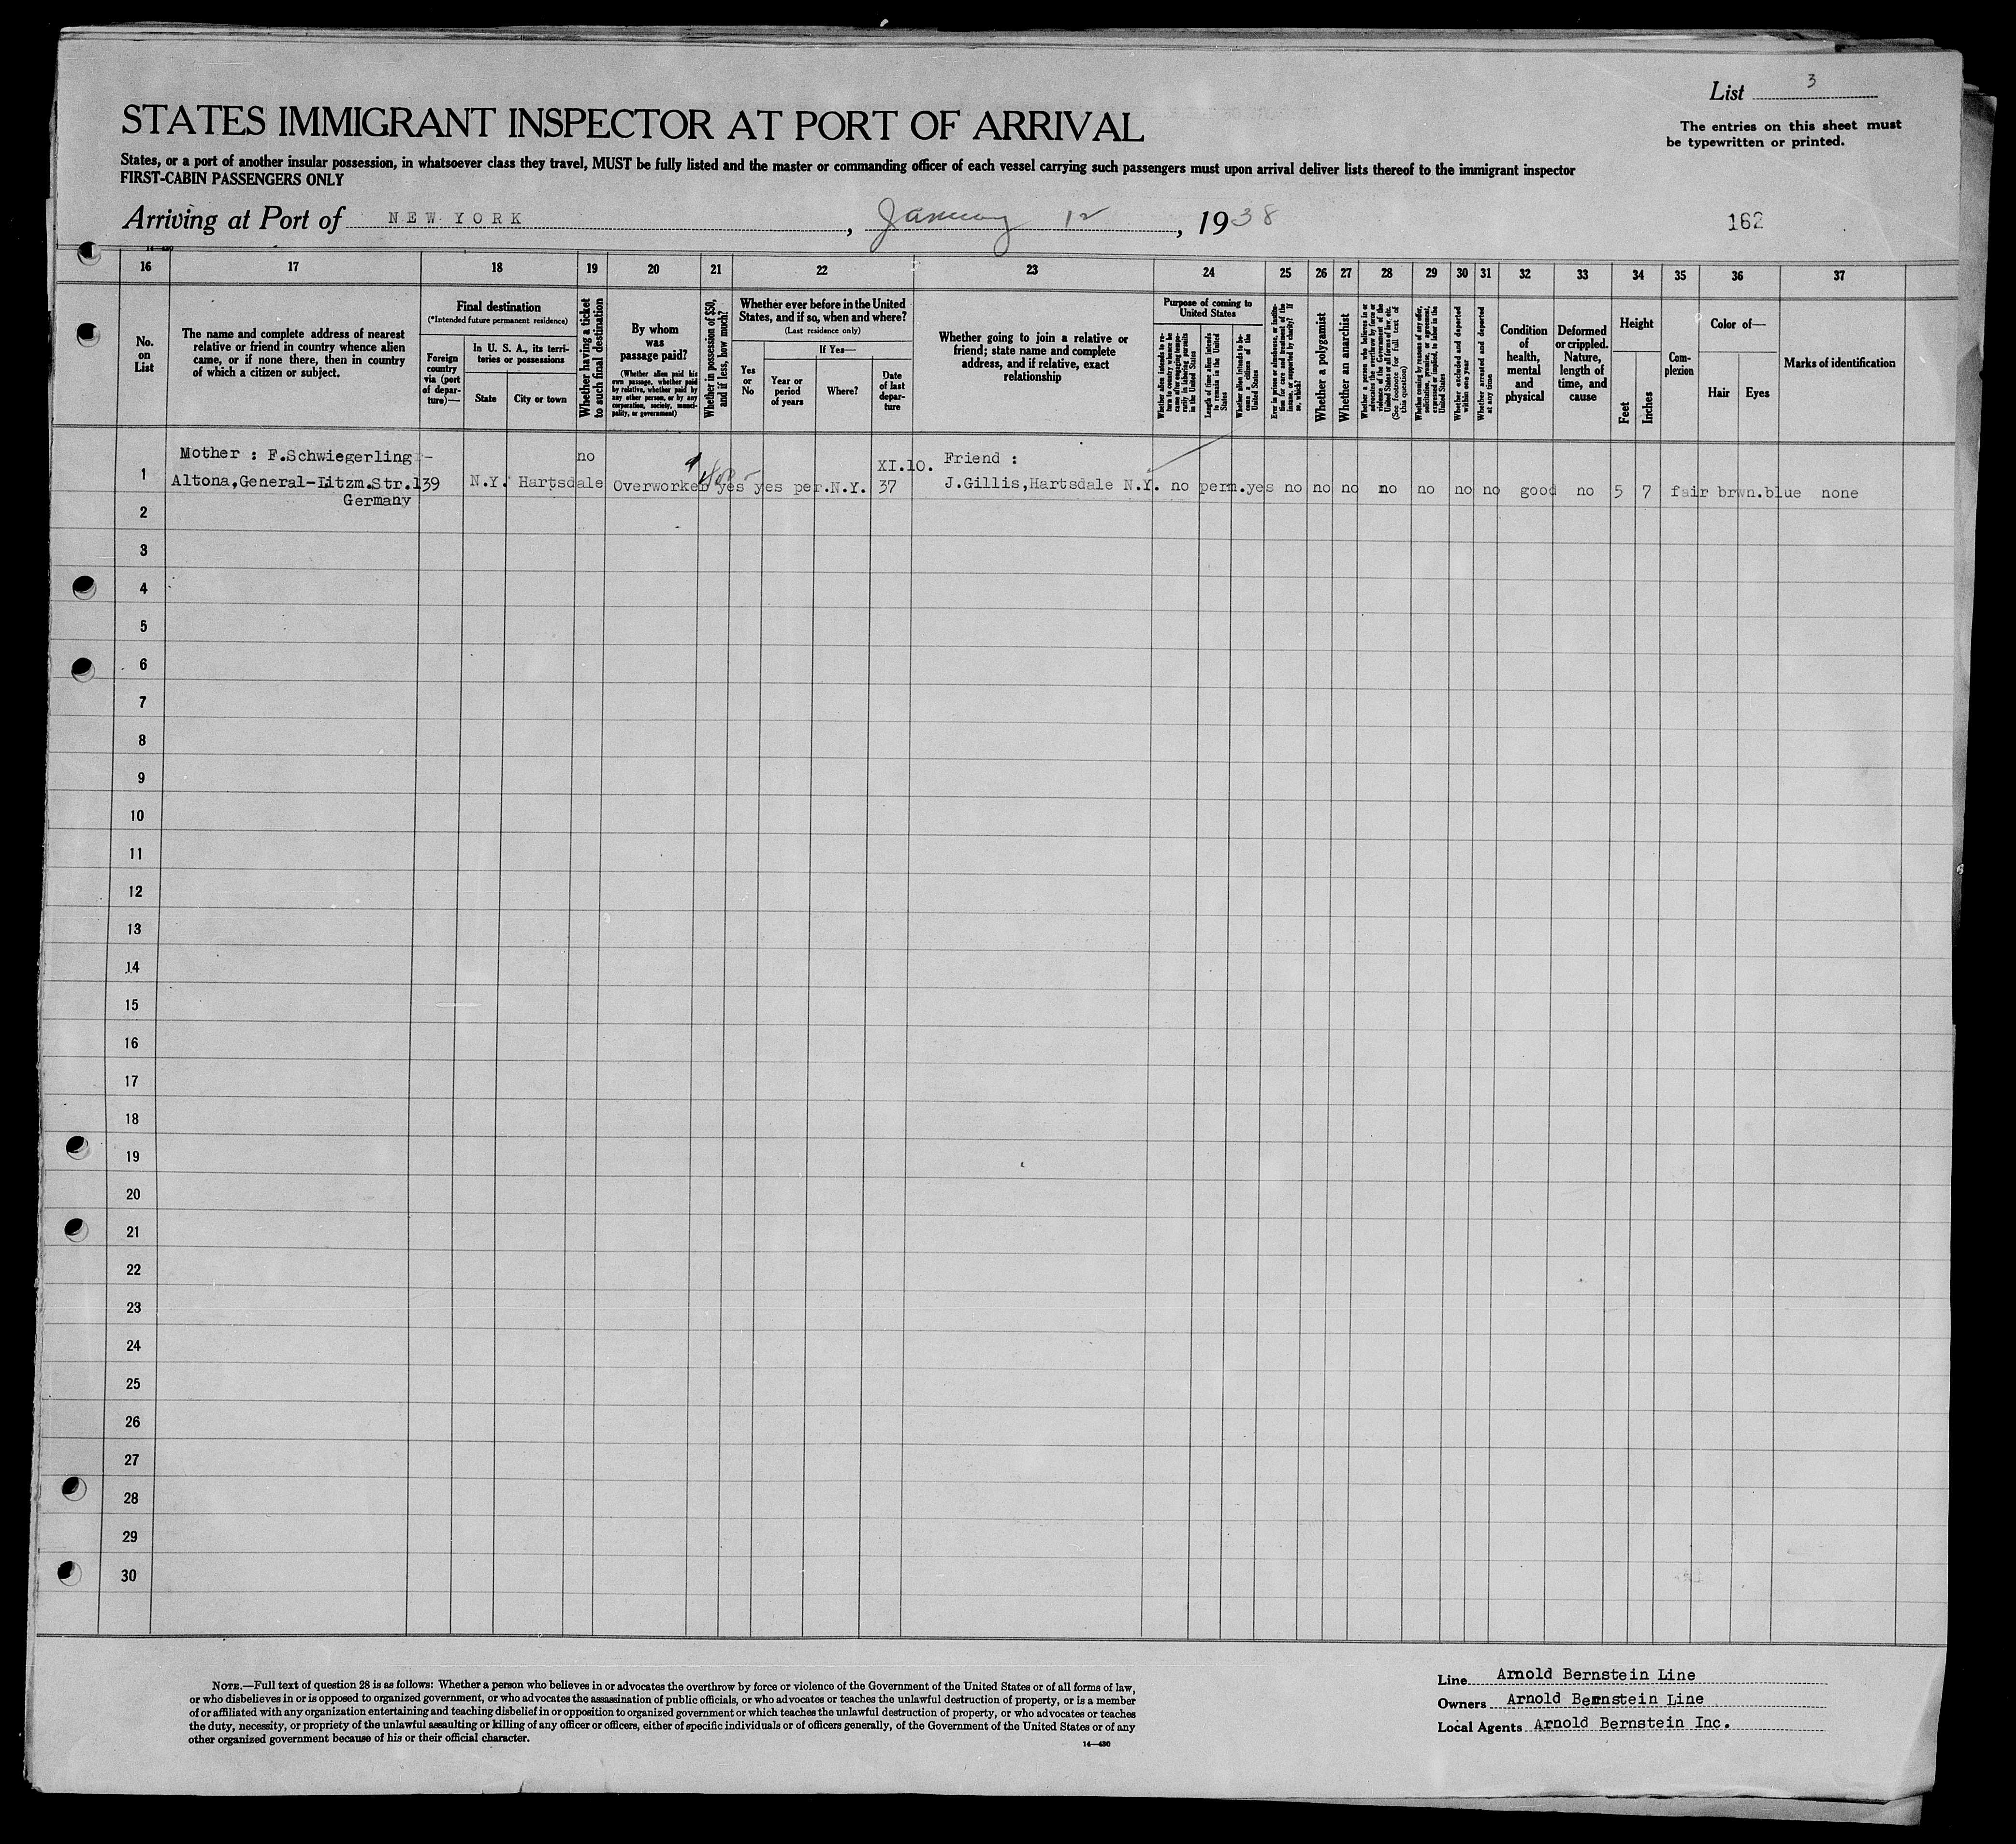 List 3
The entries on this sheet must
be typewritten or printed.
STATES IMMIGRANT INSPECTOR AT PORT OF ARRIVAL
States, or a port of another insular possession, in whatsoever class they travel, MUST be fully listed and the master or commanding officer of each vessel carrying such passengers must upon arrival deliver lists thereof to the immigrant inspector
FIRST-CABIN PASSENGERS ONLY
Arriving at Port of NEW YORK, January 12, 1938
162
14—430
16 17 18 19 20 21 22 23 24 25 26 27 28 29 30 31 32 33 34 35 36 37
No.
on
List
The name and complete address of nearest
relative or friend in country whence alien
came, or if none there, then in country
of which a citizen or subject.
Final destination
(*Intended future permanent residence)
Foreign
country
via (port
of depar-
ture)—
In U. S. A., its terri-
tories or possessions
State
City or town
Whether having a ticket
to such final destination
By whom
was
passage paid?
(Whether alien paid his
own passage, whether paid
by relative, whether paid by
any other person, or by any
corporation, society, munici-
pality, or government)
Whether in possession of $50,
and if less, how much?
Whether ever before in the United
States, and if so, when and where?
(Last residence only)
Yes
or
No
If Yes—
Year or
period
of years
Where?
Date
of last
depar-
ture
Whether going to join a relative or
friend; state name and complete
address, and if relative, exact
relationship
Purpose of coming to
United States
Whether alien intends to re-
turn to country whence he
came after engaging tempo-
rarily in laboring pursuits
in the United States
Length of time alien intends
to remain in the United
States
Whether alien intends to be-
come a citizen of the
United States
Ever in prison or almshouse, or institu-
tion for care and treatment of the
insane, or supported by charity? If
so, which?
Whether a polygamist
Whether an anarchist
Whether a person who believes in or
advocates the overthrow by force or
violence of the Government of the
United States or all forms of law, etc.
(See footnote for full text of
this question)
Whether coming by reasons of any offer,
solicitation, promise, or agreement,
expressed or implied, to labor in the
United States
Whether excluded and deported
within one year
Whether arrested and deported
at any time
Condition
of
health,
mental
and
physical
Deformed
or crippled.
Nature,
length of
time, and
cause
Height
Feet
Inches
Com-
plexion
Color of—
Hair
Eyes
Marks of identification
Mother : F.Schwiegerling - no XI.10. Friend :
1 Altona,General-Litzm.Str.139 N.Y. Hartsdale Overworked yes yes per.N.Y. 37 J.Gillis,Hartsdale N.Y. no perm.yes no no no no no no no good no 5 7 fair brwn.blue none
Germany
2
3
4
5
6
7
8
9
10
11
12
13
14
15
16
17
18
19
20
21
22
23
24
25
26
27
28
29
30
NOTE.—Full text of question 28 is as follows: Whether a person who believes in or advocates the overthrow by force or violence of the Government of the United States or of all forms of law,
or who disbelieves in or is opposed to organized government, or who advocates the assassination of public officials, or who advocates or teaches the unlawful destruction of property, or is a member
of or affiliated with any organization entertaining and teaching disbelief in or opposition to organized government or which teaches the unlawful destruction of property, or who advocates or teaches
the duty, necessity, or propriety of the unlawful assaulting or killing of any officer or officers, either of specific individuals or of officers generally, of the Government of the United States or of any
other organized government because of his or their official character.
14—430
Line Arnold Bernstein Line
Owners Arnold Bernstein Line
Local Agents Arnold Bernstein Inc.